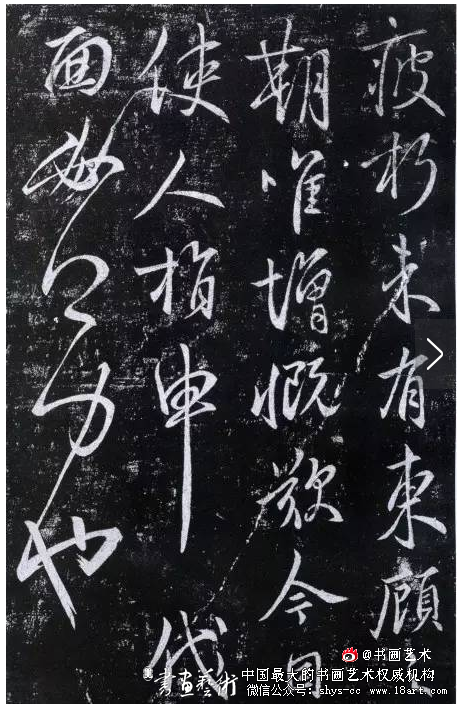 疲朽未有東顧之
期唯增慨歎今因
使人指申代
面也
@书画艺术
書畫藝術 中国最大的书画艺术权威机构
微信公众号：shys-cc www.18art.com